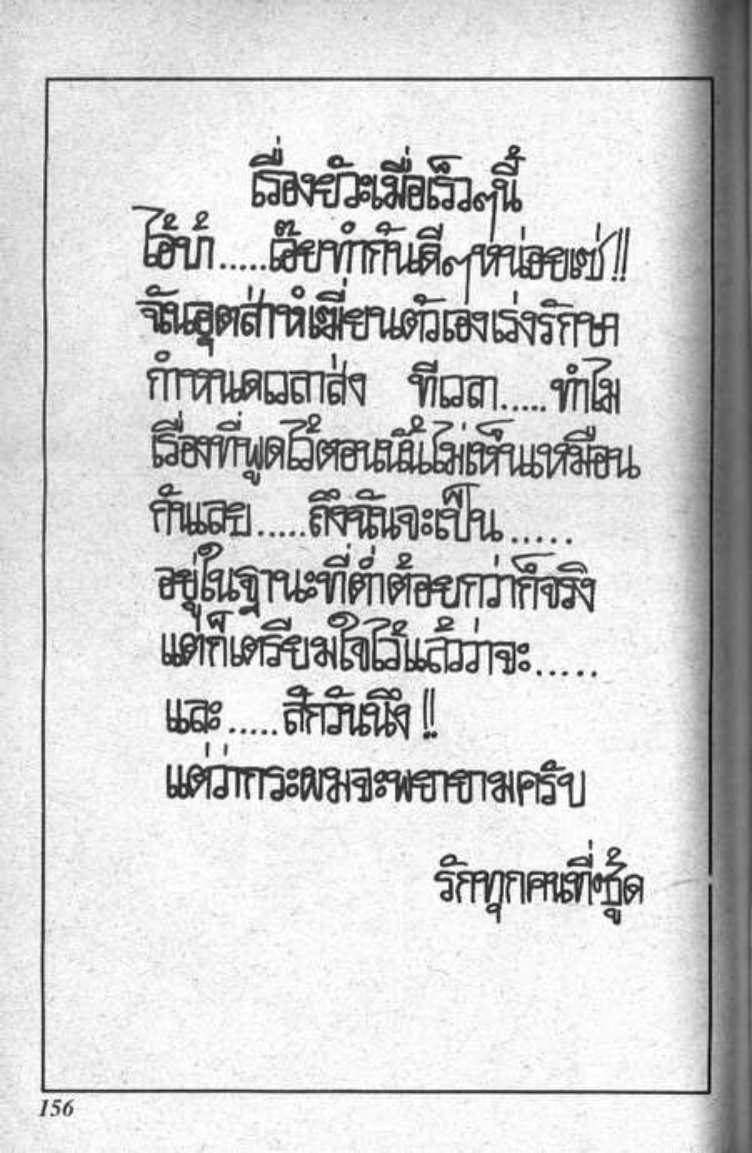 เรื่องยัวะเมื่อเร็วๆนี้
ไอ้บ้า.....เอ๊ยทำกันดีๆหน่อยเซ่!!
ฉันอุตส่าห์เฆี่ยนตัวเองเร่งรักษา
กำหนดเวลาส่ง ทีเวลา.....ทำไม
เรื่องที่พูดไว้ตอนนั้นไม่เห็นเหมือน
กันเลย.....ถึงฉันจะเป็น.....
อยู่ในฐานะที่ต่ำต้อยกว่าก็จริง
แต่ก็เตรียมใจไว้แล้วว่าจะ.....
และ.....สักวันนึง!!
แต่ว่ากระผมจะพยายามครับ
รักทุกคนที่ซู้ด
156